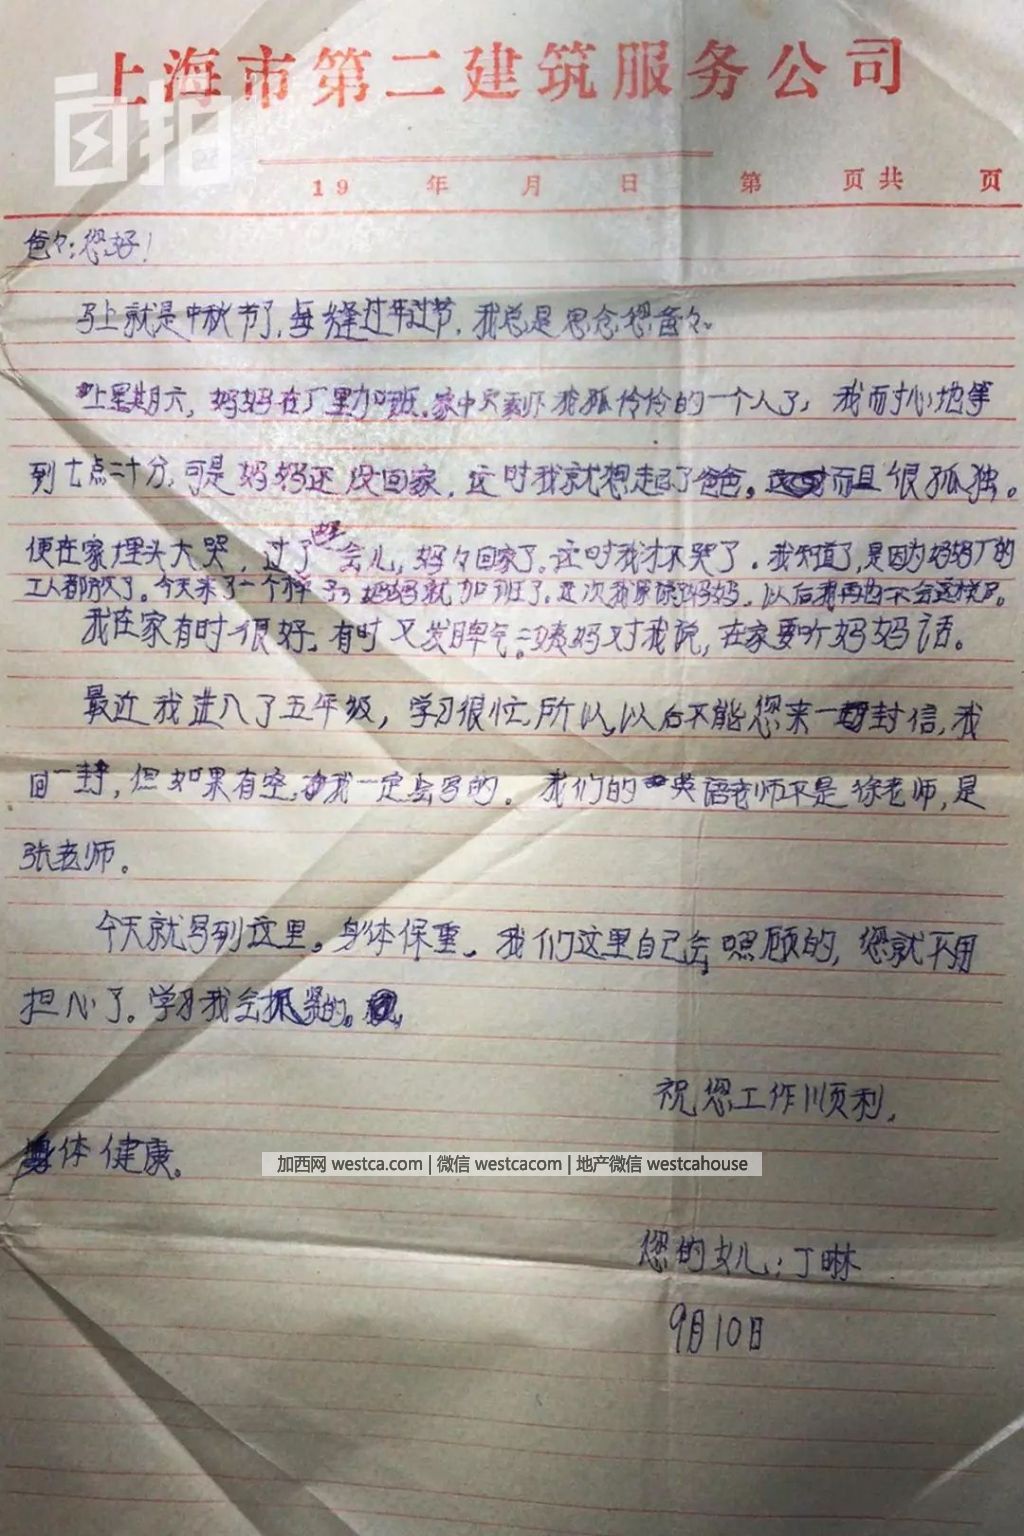 上海市第二建筑服务公司
自拍
19 年 月 日 第 页共 页
爸々:您好!
马上就是中秋节了,每逢过年过节,我总是思念您爸々。
上星期六,妈妈在厂里加班,家中只剩下我孤伶伶的一个人了,我耐心地等
到七点二十分,可是妈妈还没回家,这时我就想起了爸爸。而且很孤独。
便在家埋头大哭,过了一会儿,妈々回家了,这时我才不哭了。我知道了,是因为妈妈厂的
工人都放了。今天来了一个样子,妈妈就加班了。这次我原谅妈妈,以后我再也不会这样了。
我在家有时很好,有时又发脾气。二姨妈对我说,在家要听妈妈话。
最近我进入了五年级,学习很忙,所以,以后不能您来一封信,我
回一封,但如果有空,我一定会写的。我们的英语老师不是徐老师,是
张老师。
今天就写到这里。身体保重。我们这里自己会照顾的,您就不用
担心了。学习我会抓紧的。
祝您工作顺利,
身体健康。
加西网 westca.com | 微信 westcacom | 地产微信 westcahouse
您的女儿:丁琳
9月10日